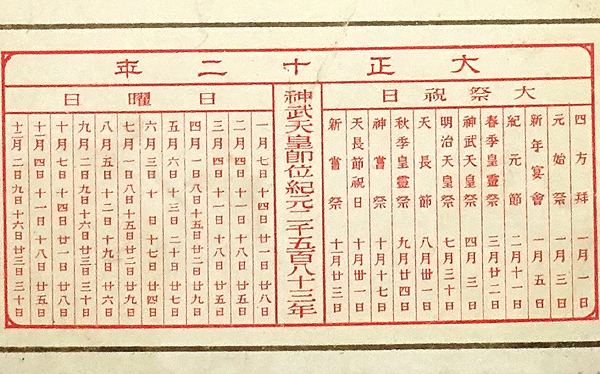 大正十二年
大祭祝日
四方拜 一月一日
元始祭 一月三日
新年宴會 一月五日
紀元節 二月十一日
春季皇靈祭 三月廿二日
神武天皇祭 四月三日
明治天皇祭 七月三十日
天長節 八月卅一日
秋季皇靈祭 九月廿四日
神嘗祭 十月十七日
天長節祝日 十月卅一日
新嘗祭 十一月廿三日
神武天皇即位紀元二千五百八十三年
日曜日
一月七日十四日廿一日廿八日
二月四日十一日十八日廿五日
三月四日十一日十八日廿五日
四月一日八日十五日廿二日廿九日
五月六日十三日二十日廿七日
六月三日十日十七日廿四日
七月一日八日十五日廿二日廿九日
八月五日十二日十九日廿六日
九月二日九日十六日廿三日三十日
十月七日十四日廿一日廿八日
十一月四日十一日十八日廿五日
十二月二日九日十六日廿三日三十日